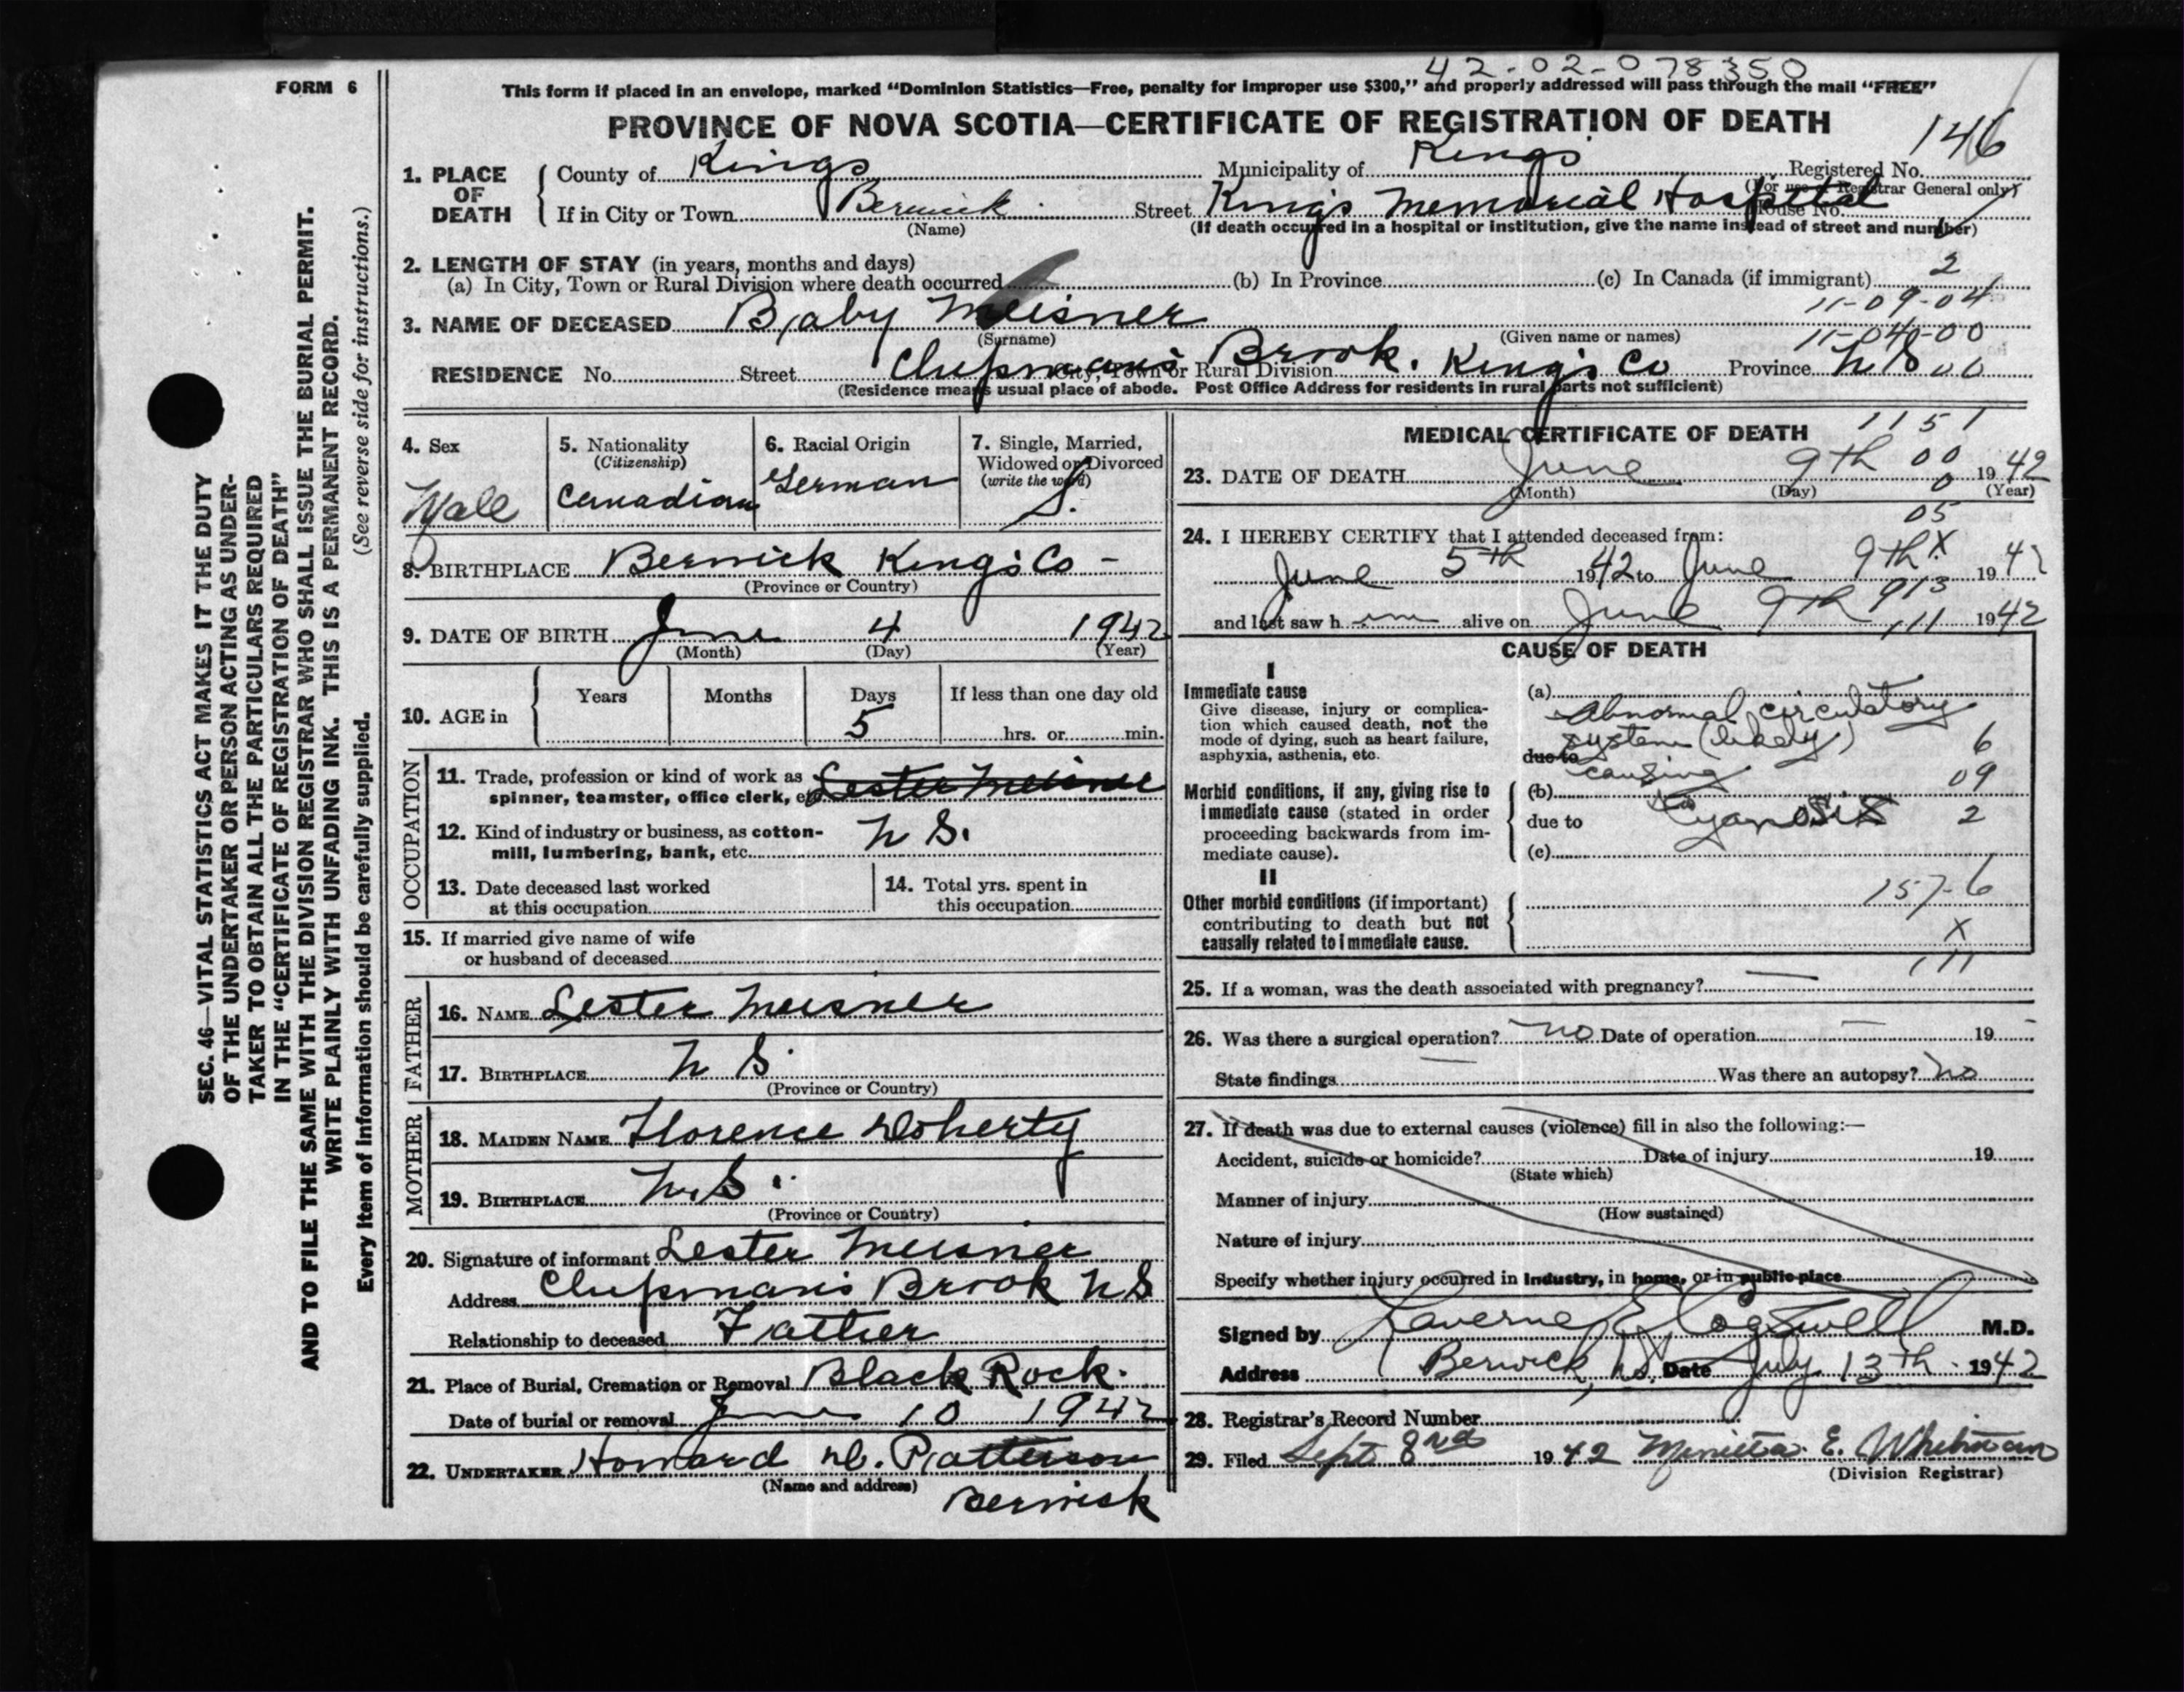 42-02-078350
FORM 6
This form if placed in an envelope, marked "Dominion Statistics—Free, penalty for improper use $300," and properly addressed will pass through the mail "FREE"
PROVINCE OF NOVA SCOTIA—CERTIFICATE OF REGISTRATION OF DEATH
146
1. PLACE OF DEATH
County of Kings Municipality of Kings Registered No.
(For use of Registrar General only)
If in City or Town Berwick Street King's Memorial Hospital House No.
(Name) (If death occurred in a hospital or institution, give the name instead of street and number)
2. LENGTH OF STAY (in years, months and days)
(a) In City, Town or Rural Division where death occurred (b) In Province (c) In Canada (if immigrant) 2
11-09-04
3. NAME OF DECEASED Baby Meisner
(Surname) (Given name or names) 11-040-00
RESIDENCE No. Street Chipmans Brook. King's Co Province N S 00
City, Town or Rural Division
(Residence means usual place of abode. Post Office Address for residents in rural parts not sufficient)
4. Sex Male
5. Nationality (Citizenship) Canadian
6. Racial Origin German
7. Single, Married, Widowed or Divorced (write the word) S.
8. BIRTHPLACE Berwick King's Co -
(Province or Country)
9. DATE OF BIRTH June 4 1942
(Month) (Day) (Year)
10. AGE in Years Months Days 5 If less than one day old hrs. or min.
OCCUPATION
11. Trade, profession or kind of work as spinner, teamster, office clerk, etc. Lester Meisner
12. Kind of industry or business, as cotton-mill, lumbering, bank, etc. N S.
13. Date deceased last worked at this occupation
14. Total yrs. spent in this occupation
15. If married give name of wife or husband of deceased
FATHER
16. NAME Lester Meisner
17. BIRTHPLACE N S.
(Province or Country)
MOTHER
18. MAIDEN NAME Florence Doherty
19. BIRTHPLACE N. S.
(Province or Country)
20. Signature of informant Lester Meisner
Address Chipmans Brook N S
Relationship to deceased Father
21. Place of Burial, Cremation or Removal Black Rock.
Date of burial or removal June 10 1942
22. UNDERTAKER Howard D. Patterson
(Name and address) Berwick
1151
MEDICAL CERTIFICATE OF DEATH
23. DATE OF DEATH June 9th 00 1942
(Month) (Day) 0 (Year)
05
24. I HEREBY CERTIFY that I attended deceased from:
June 5th 1942 to June 9th X 1942
913
and last saw h im alive on June 9th 111 1942
CAUSE OF DEATH
I
Immediate cause
Give disease, injury or complication which caused death, not the mode of dying, such as heart failure, asphyxia, asthenia, etc.
(a) Abnormal circulatory
system (likely) 6
due to causing
Morbid conditions, if any, giving rise to immediate cause (stated in order proceeding backwards from immediate cause).
(b) 09
due to Cyanosis 2
(c)
II
Other morbid conditions (if important) contributing to death but not causally related to immediate cause.
157-6
X
111
25. If a woman, was the death associated with pregnancy? —
26. Was there a surgical operation? no Date of operation — 19 -
State findings — Was there an autopsy? No
27. If death was due to external causes (violence) fill in also the following:—
Accident, suicide or homicide? Date of injury 19
(State which)
Manner of injury
(How sustained)
Nature of injury
Specify whether injury occurred in Industry, in home, or in public place
Signed by Laverne E Cogswell M.D.
Address Berwick, N.S. Date July 13th 1942
28. Registrar's Record Number
29. Filed Sept 8 1942 E. Whitman
(Division Registrar)
SEC. 46—VITAL STATISTICS ACT MAKES IT THE DUTY
OF THE UNDERTAKER OR PERSON ACTING AS UNDER-
TAKER TO OBTAIN ALL THE PARTICULARS REQUIRED
IN THE "CERTIFICATE OF REGISTRATION OF DEATH"
AND TO FILE THE SAME WITH THE DIVISION REGISTRAR WHO SHALL ISSUE THE BURIAL PERMIT.
WRITE PLAINLY WITH UNFADING INK. THIS IS A PERMANENT RECORD.
Every item of information should be carefully supplied. (See reverse side for instructions.)